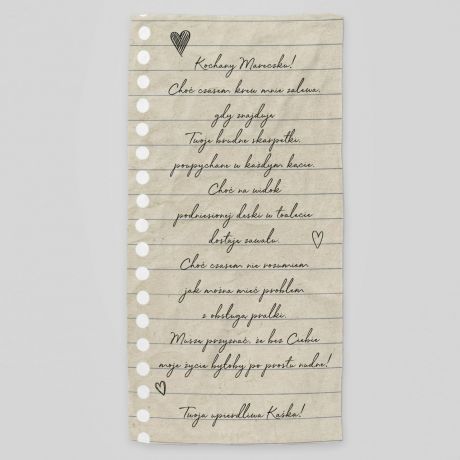 Kochany Mareczku!
Choć czasem krew mnie zalewa,
gdy znajduję
Twoje brudne skarpetki,
poupychane w każdym kącie.
Choć na widok
podniesionej deski w toalecie
dostaję zawału.
Choć czasem nie rozumiem
jak można mieć problem
z obsługą pralki.
Muszę przyznać, że bez Ciebie
moje życie byłoby po prostu nudne!
Twoja upierdliwa Kaśka!